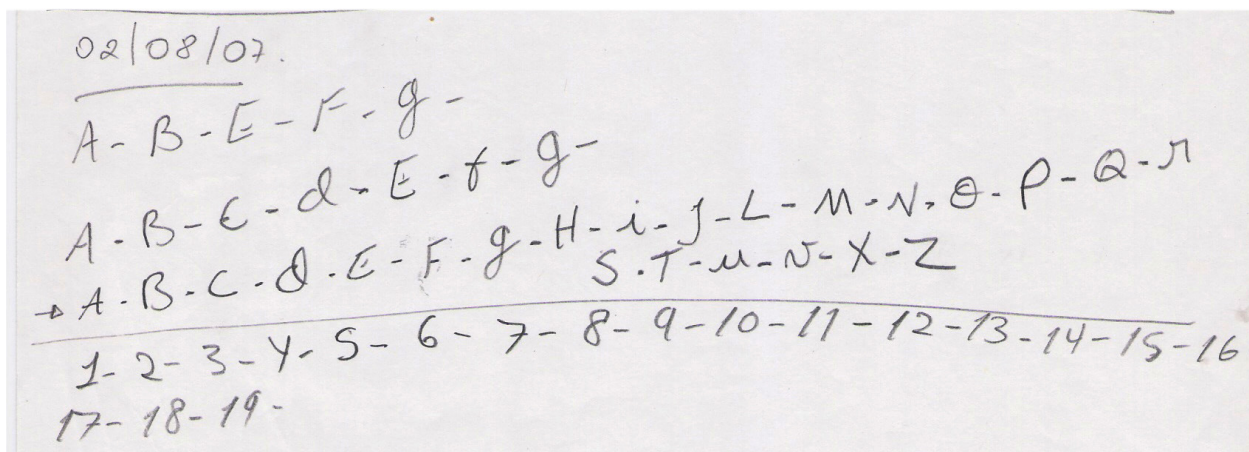 02/08/07.
A - B - E - F - g -
A - B - C - d - E - f - g -
A - B - C - d - E - F - g - H - i - J - L - M - N - O - P - Q - r
S - T - u - v - X - Z
1 - 2 - 3 - 4 - 5 - 6 - 7 - 8 - 9 - 10 - 11 - 12 - 13 - 14 - 15 - 16
17 - 18 - 19 -